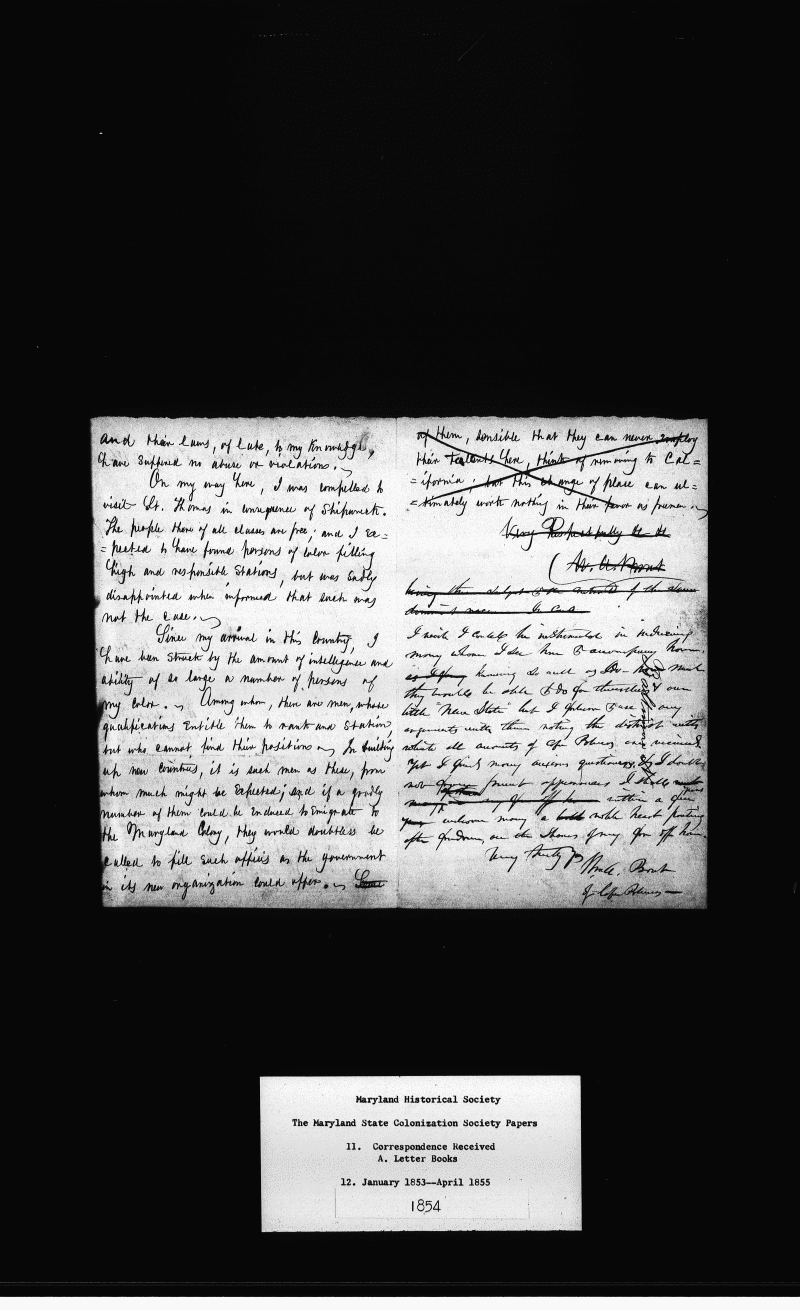 and their laws, of late, to my Knowledge,
have suffered no abuse or violations.
On my way here, I was compelled to
visit St. Thomas in consequence of Shipwreck.
The people there of all classes are free; and I Ex=
=pected to have found persons of Color filling
high and responsible Stations, but was Sadly
disappointed when informed that such was
not the case.
Since my arrival in this Country, I
have been Struck by the amount of intelligence and
ability of so large a number of persons of
my color. Among whom, there are men, whose
qualifications Entitle them to rank and Station
but who cannot find their positions In building
up new countries, it is such men as these, from
whom much might be Expected; and if a goodly
number of them could be Enduced to Emigrate to
the Maryland Colony, they would doubtless be
called to fill Such offices as the government
in its new organization could offer. Some
of them, sensible that they can never employ
their talents here, think of removing to Cal=
=ifornia; but this change of place can ul=
=timately worth nothing in their favor as freemen.
Very Respectfully
I wish I could be instrumental in inducing
many whom I see here to accompany
knowing so well
they would be able to do for themselves & our
little "New State" but I
arguments with them noting the distrust with
which all accounts of Cape Palmas are received
Yet I find many anxious questioners, & I doubt
not from present appearances I shall
within a few years
welcome many a noble heart panting
after freedom, on the Shores of my far off home.
Very truly
of Cape Palmas
Maryland Historical Society
The Maryland State Colonization Society Papers
11. Correspondence Received
A. Letter Books
12. January 1853--April 1855
1854